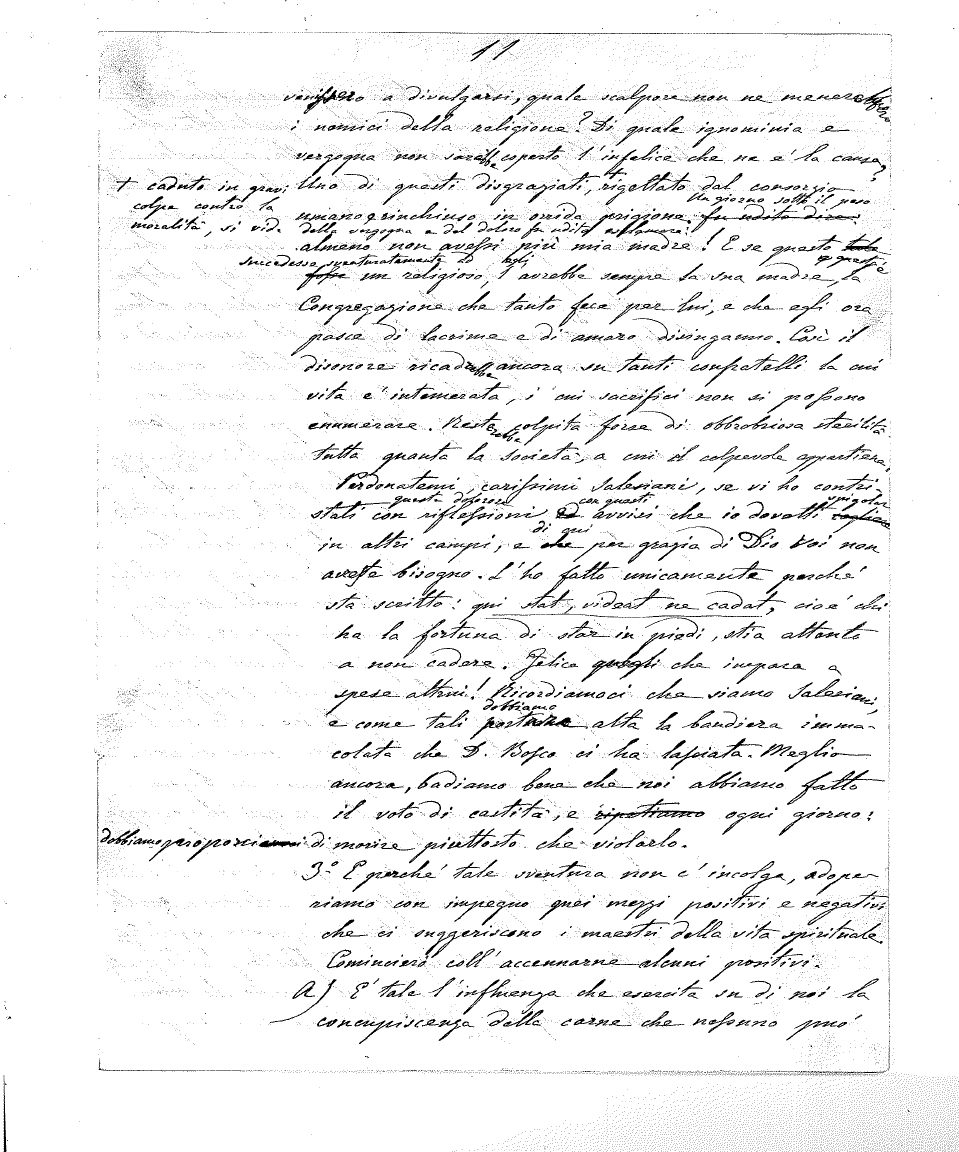 11
venissero a divulgarsi, quale scalpore non ne menerebbero
i nemici della religione? Di quale ignominia e
vergogna non sarebbe coperto l'infelice che ne è la causa?
Uno di questi disgraziati, + rigettato dal consorzio
+ caduto in gravi
colpe contro la
moralità, si vide
Un giorno sotto il peso
umano e rinchiuso in orrida prigione. fu udito dire:
della vergogna e del dolore fu udito esclamare:
almeno non avessi più mia madre! E se questo
succedesse sventuratamente ad egli
fosse un religioso, l'avrebbe sempre la sua madre, la
Congregazione che tanto fece per lui, e che egli ora
pasce di lacrime e di amaro disinganno. Così il
disonore ricadrebbe ancora su tanti confratelli la cui
vita è intemerata, i cui sacrifici non si possono
enumerare. Resterebbe colpita forse di obbrobriosa sterilità
tutta quanta la società, a cui il colpevole appartiene.
Perdonatemi, carissimi Salesiani, se vi ho contri-
queste dolorose con questi spigolar
stati con riflessioni ed avvisi che io dovetti cogliere
di cui
in altri campi, e che per grazia di Dio voi non
aveste bisogno. L'ho fatto unicamente perché
sta scritto: qui stat, videat ne cadat, cioè chi
ha la fortuna di star in piedi, stia attento
a non cadere. Felice quegli che impara a
spese altrui! Ricordiamoci che siamo Salesiani,
dobbiamo
e come tali portare alta la bandiera imma-
colata che D. Bosco ci ha lasciata. Meglio
ancora, badiamo bene che noi abbiamo fatto
il voto di castità, e ripetiamo ogni giorno:
dobbiamo proporci di morire piuttosto che violarlo.
3° E perché tale sventura non c'incolga, adope-
riamo con impegno quei mezzi positivi e negativi
che ci suggeriscono i maestri della vita spirituale.
Comincierò coll'accennarne alcuni positivi.
A) È tale l'influenza che esercita su di noi la
concupiscenza della carne che nessuno può